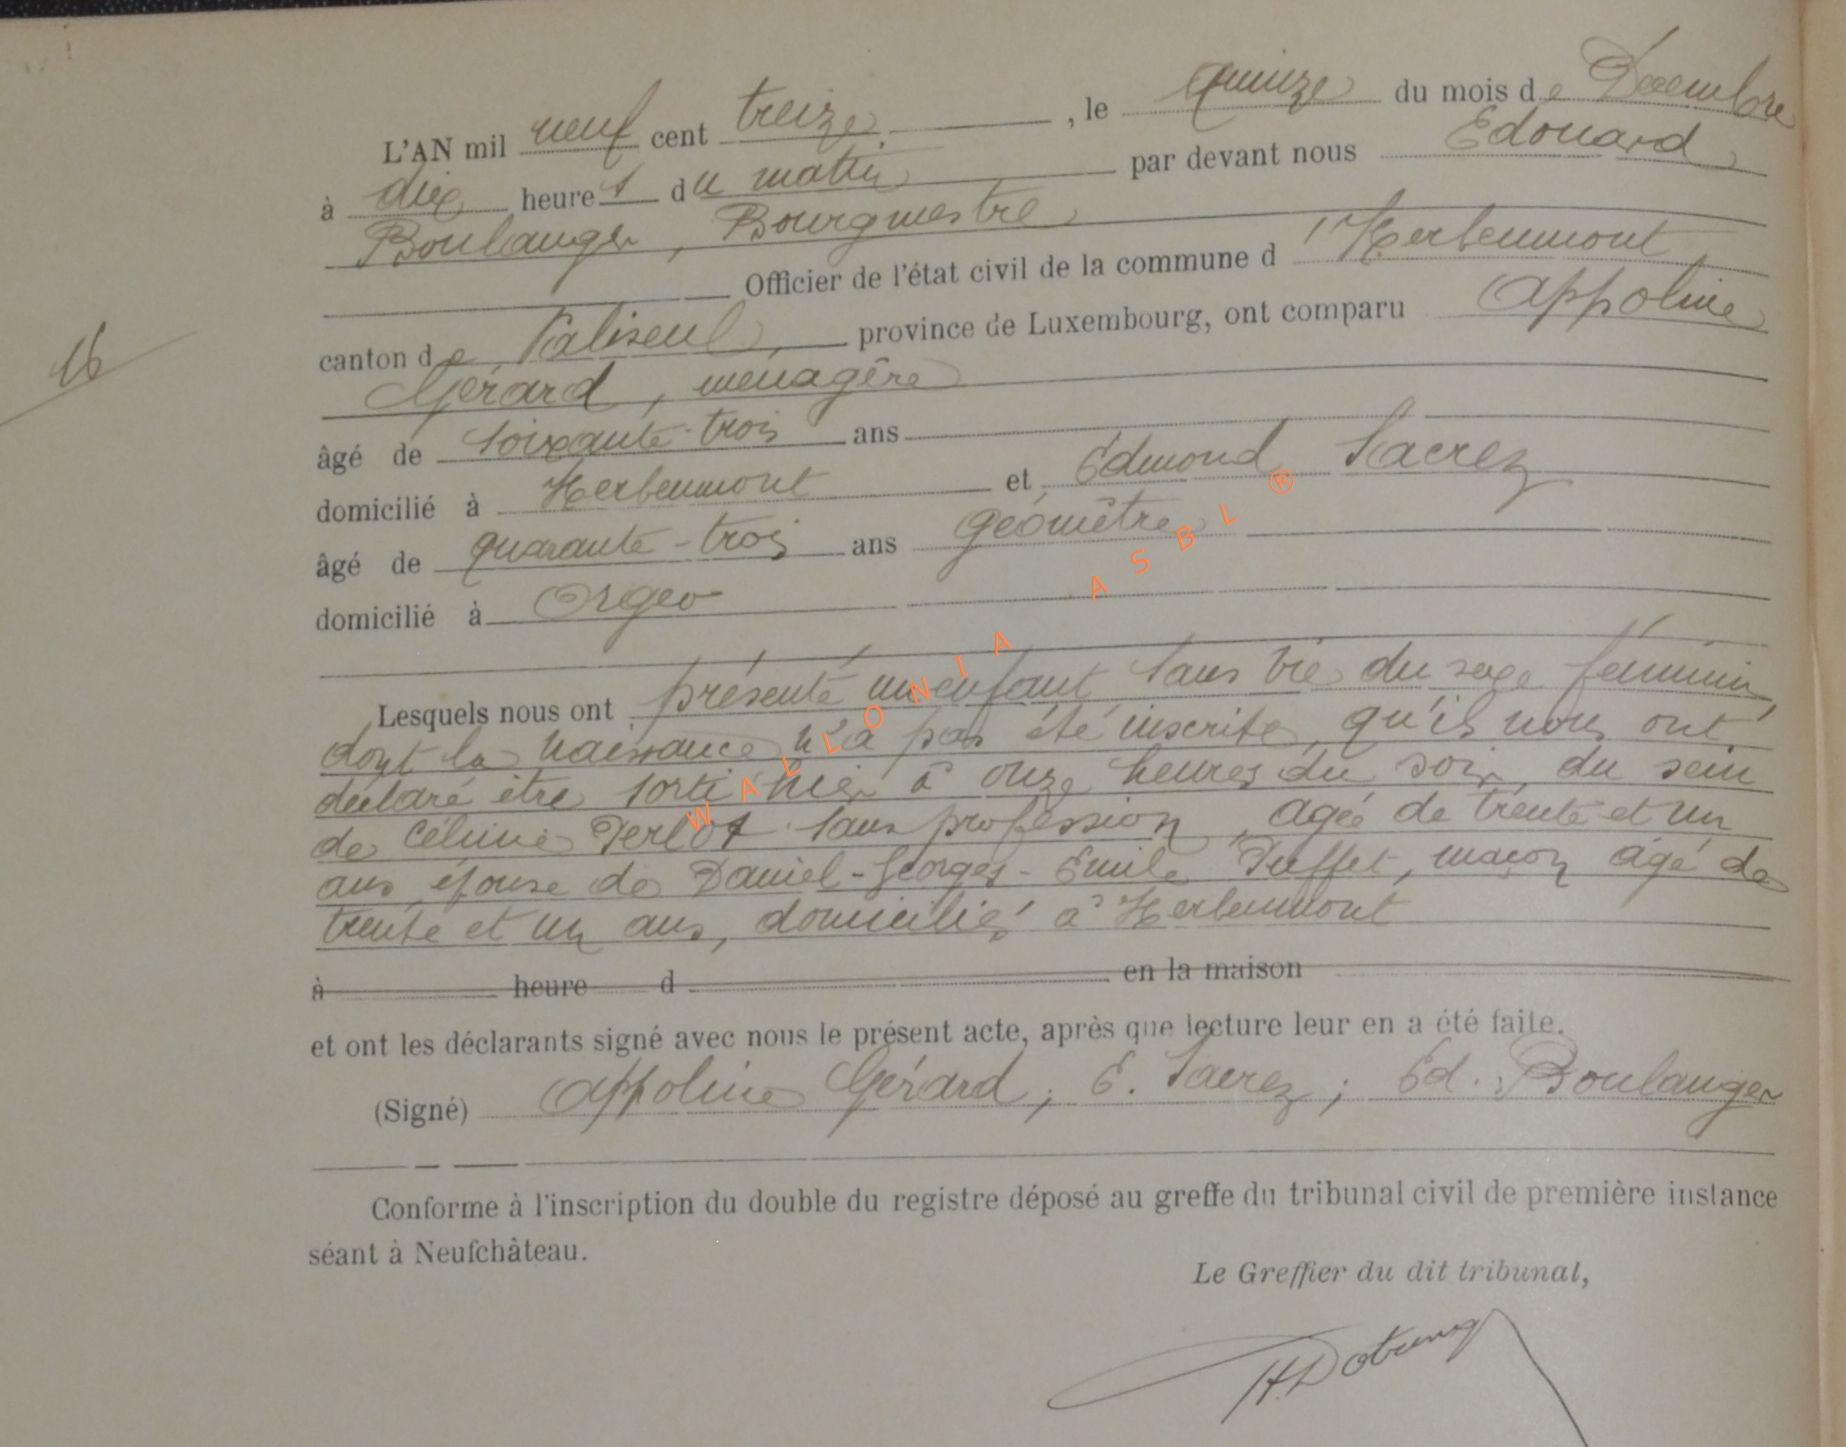 L'AN mil neuf cent treize, le quinze du mois de Decembre
à dix heures du matin par devant nous Edouard
Boulanger, Bourgmestre
Officier de l'état civil de la commune d'Herbeumont
canton de Paliseul, province de Luxembourg, ont comparu Appoline
16
Gérard, menagère
âgé de soixante-trois ans
domicilié à Herbeumont et Edmond Sacrez
âgé de quarante-trois ans géomètre
domicilié à Orgeo
Lesquels nous ont présenté un enfant sans vie du sexe féminin,
dont la naissance n'a pas été inscrite, qu'ils nous ont
déclaré être sorti hier à onze heures du soir, du sein
de Célinie Perlot sans profession, agée de trente et un
ans, épouse de Daniel-Georges-Emile Puffet, maçon âgé de
trente et un ans, domiciliés à Herbeumont
à heure d en la maison
et ont les déclarants signé avec nous le présent acte, après que lecture leur en a été faite.
(Signé) Appoline Gérard; E. Sacrez; Ed. Boulanger
Conforme à l'inscription du double du registre déposé au greffe du tribunal civil de première instance
séant à Neufchâteau.
Le Greffier du dit tribunal,
WALLONIA ASBL ®